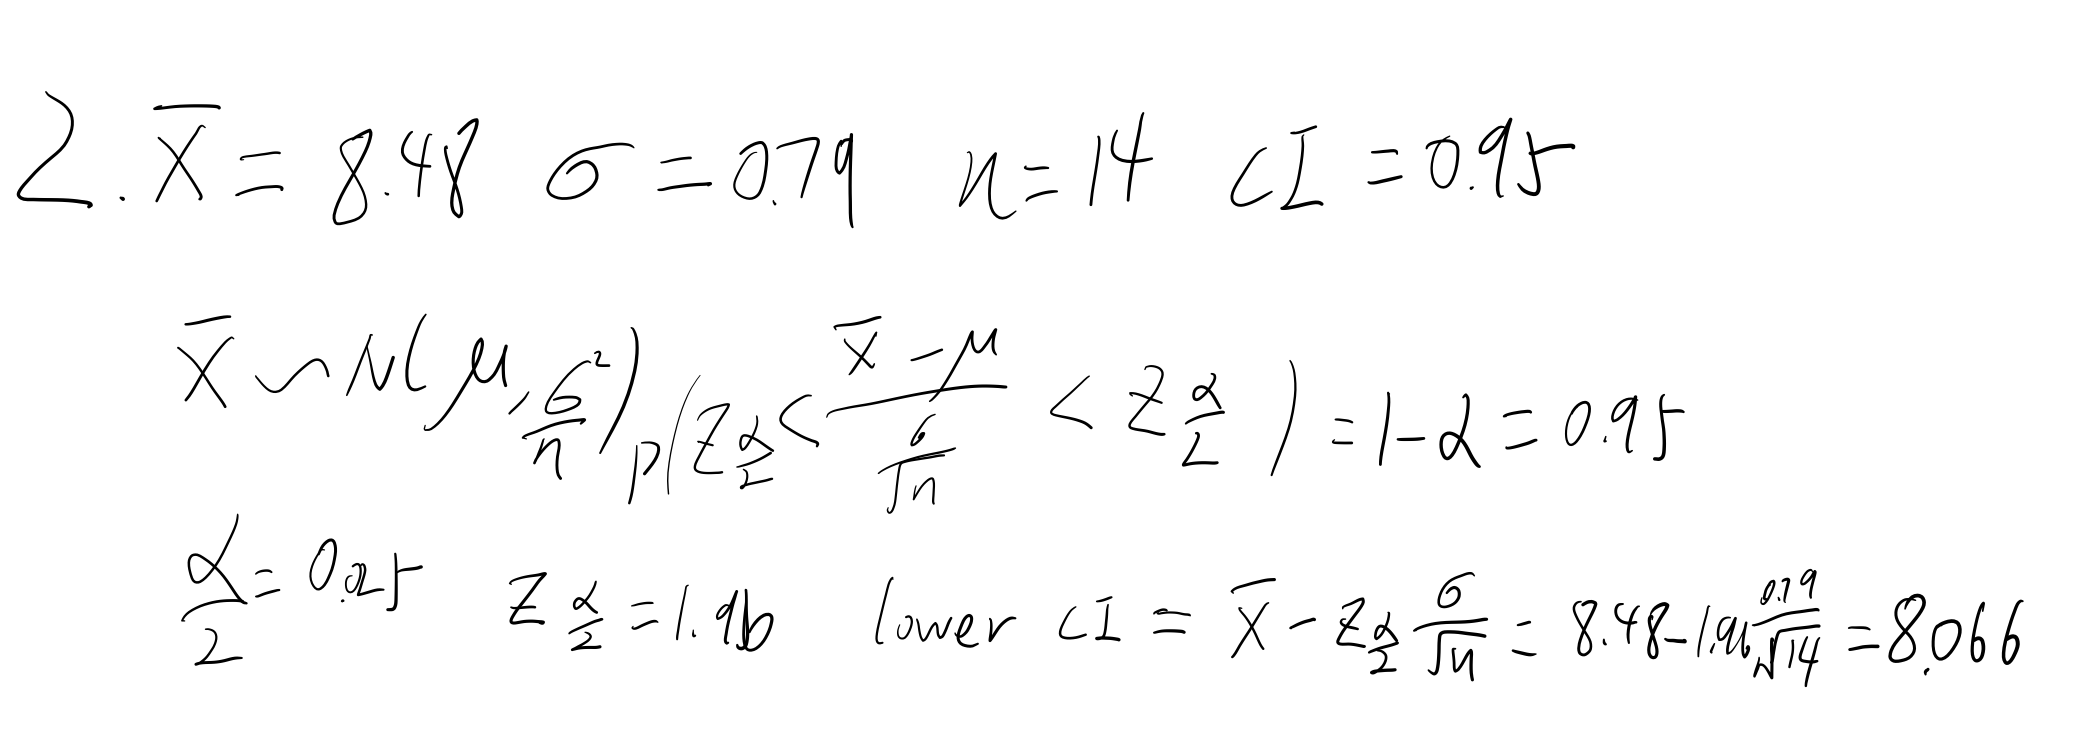 2. X̄ = 8.48 σ = 0.79 n = 14 CI = 0.95
X̄ ~ N(μ, σ²/n) p(Z α/2 < (X̄ - μ)/(σ/√n) < Z α/2) = 1 - α = 0.95
α/2 = 0.025 Z α/2 = 1.96 lower CI = X̄ - Z α/2 σ/√n = 8.48 - 1.96 0.79/√14 = 8.066